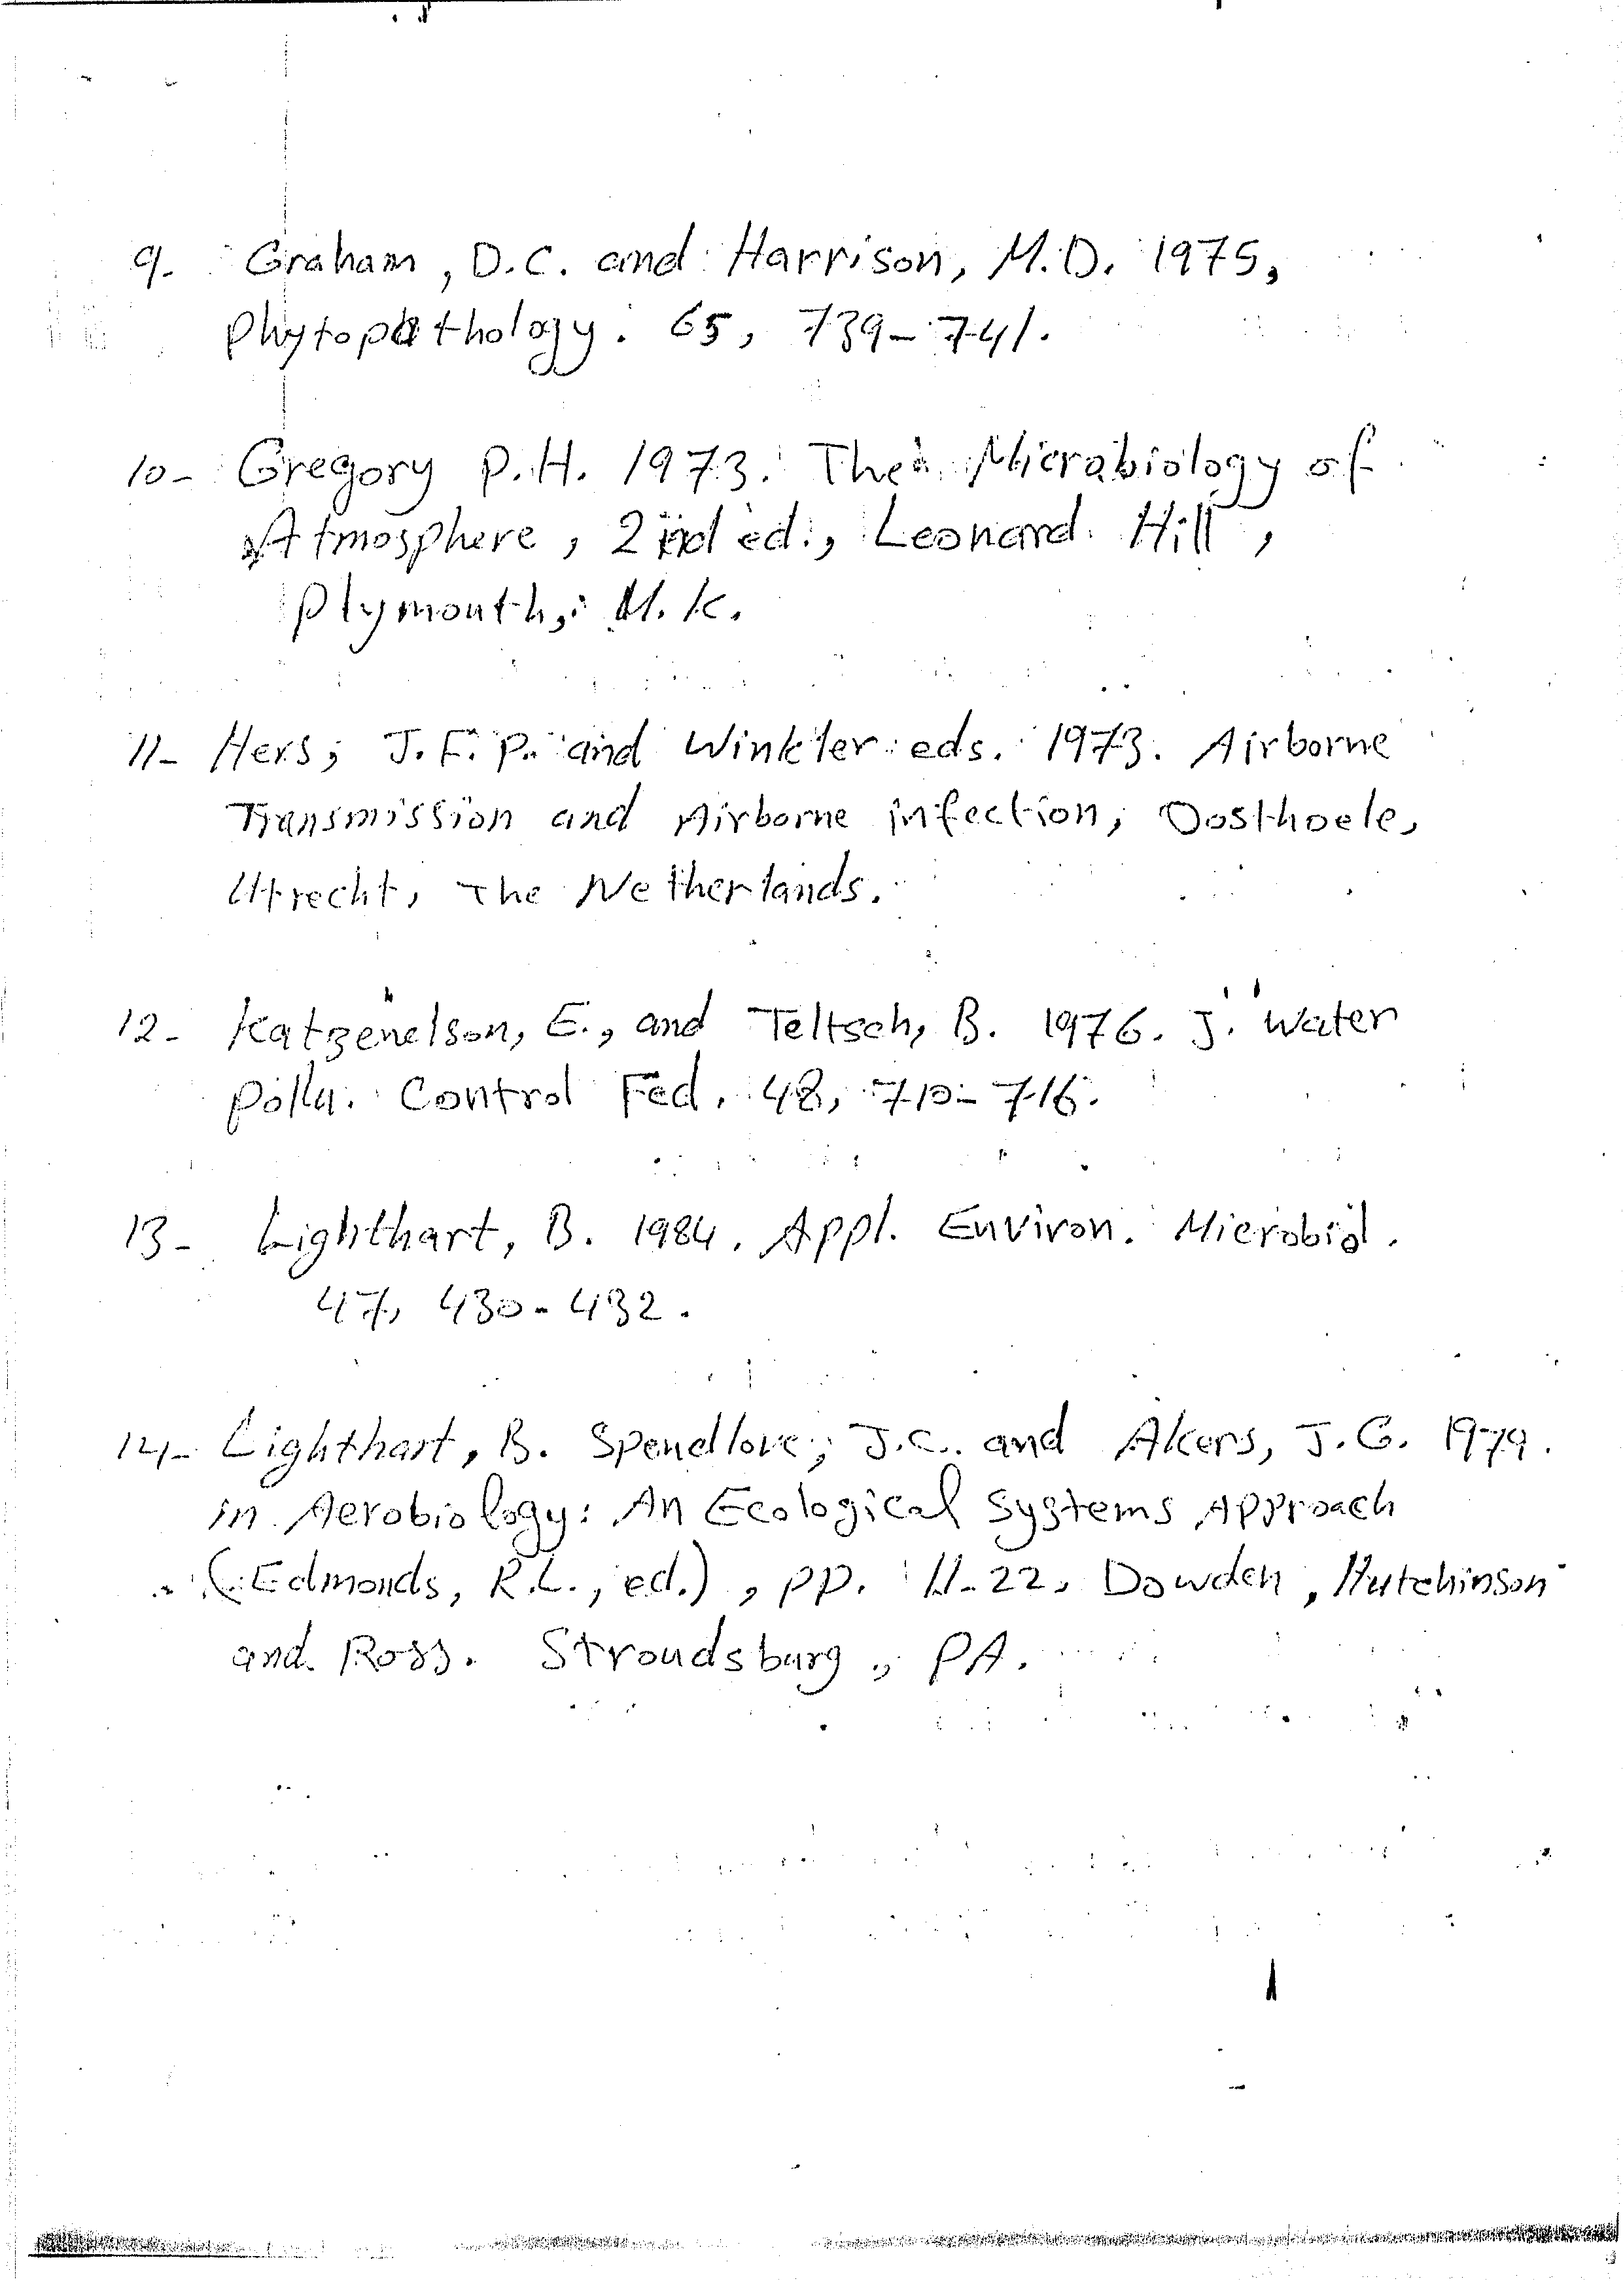 9. Graham, D.C. and Harrison, M.D. 1975,
Phytopathology. 65, 739-741.
10- Gregory P.H. 1973. The Microbiology of
Atmosphere, 2nd ed., Leonard Hill,
Plymouth, U.K.
11- Hers, J.F.P. and Winkler eds. 1973. Airborne
Transmission and Airborne infection, Oosthoele,
Utrecht, The Netherlands.
12- Katzenelson, E., and Teltsch, B. 1976. J. Water
Pollu. Control Fed. 48, 710-716.
13- Lighthart, B. 1984. Appl. Environ. Microbiol.
47, 430-432.
14- Lighthart, B. Spendlove, J.C. and Akers, J.G. 1979.
in Aerobiology: An Ecological Systems Approach
(Edmonds, R.L., ed.), pp. 11-22, Dowden, Hutchinson
and Ross. Stroudsburg, PA.